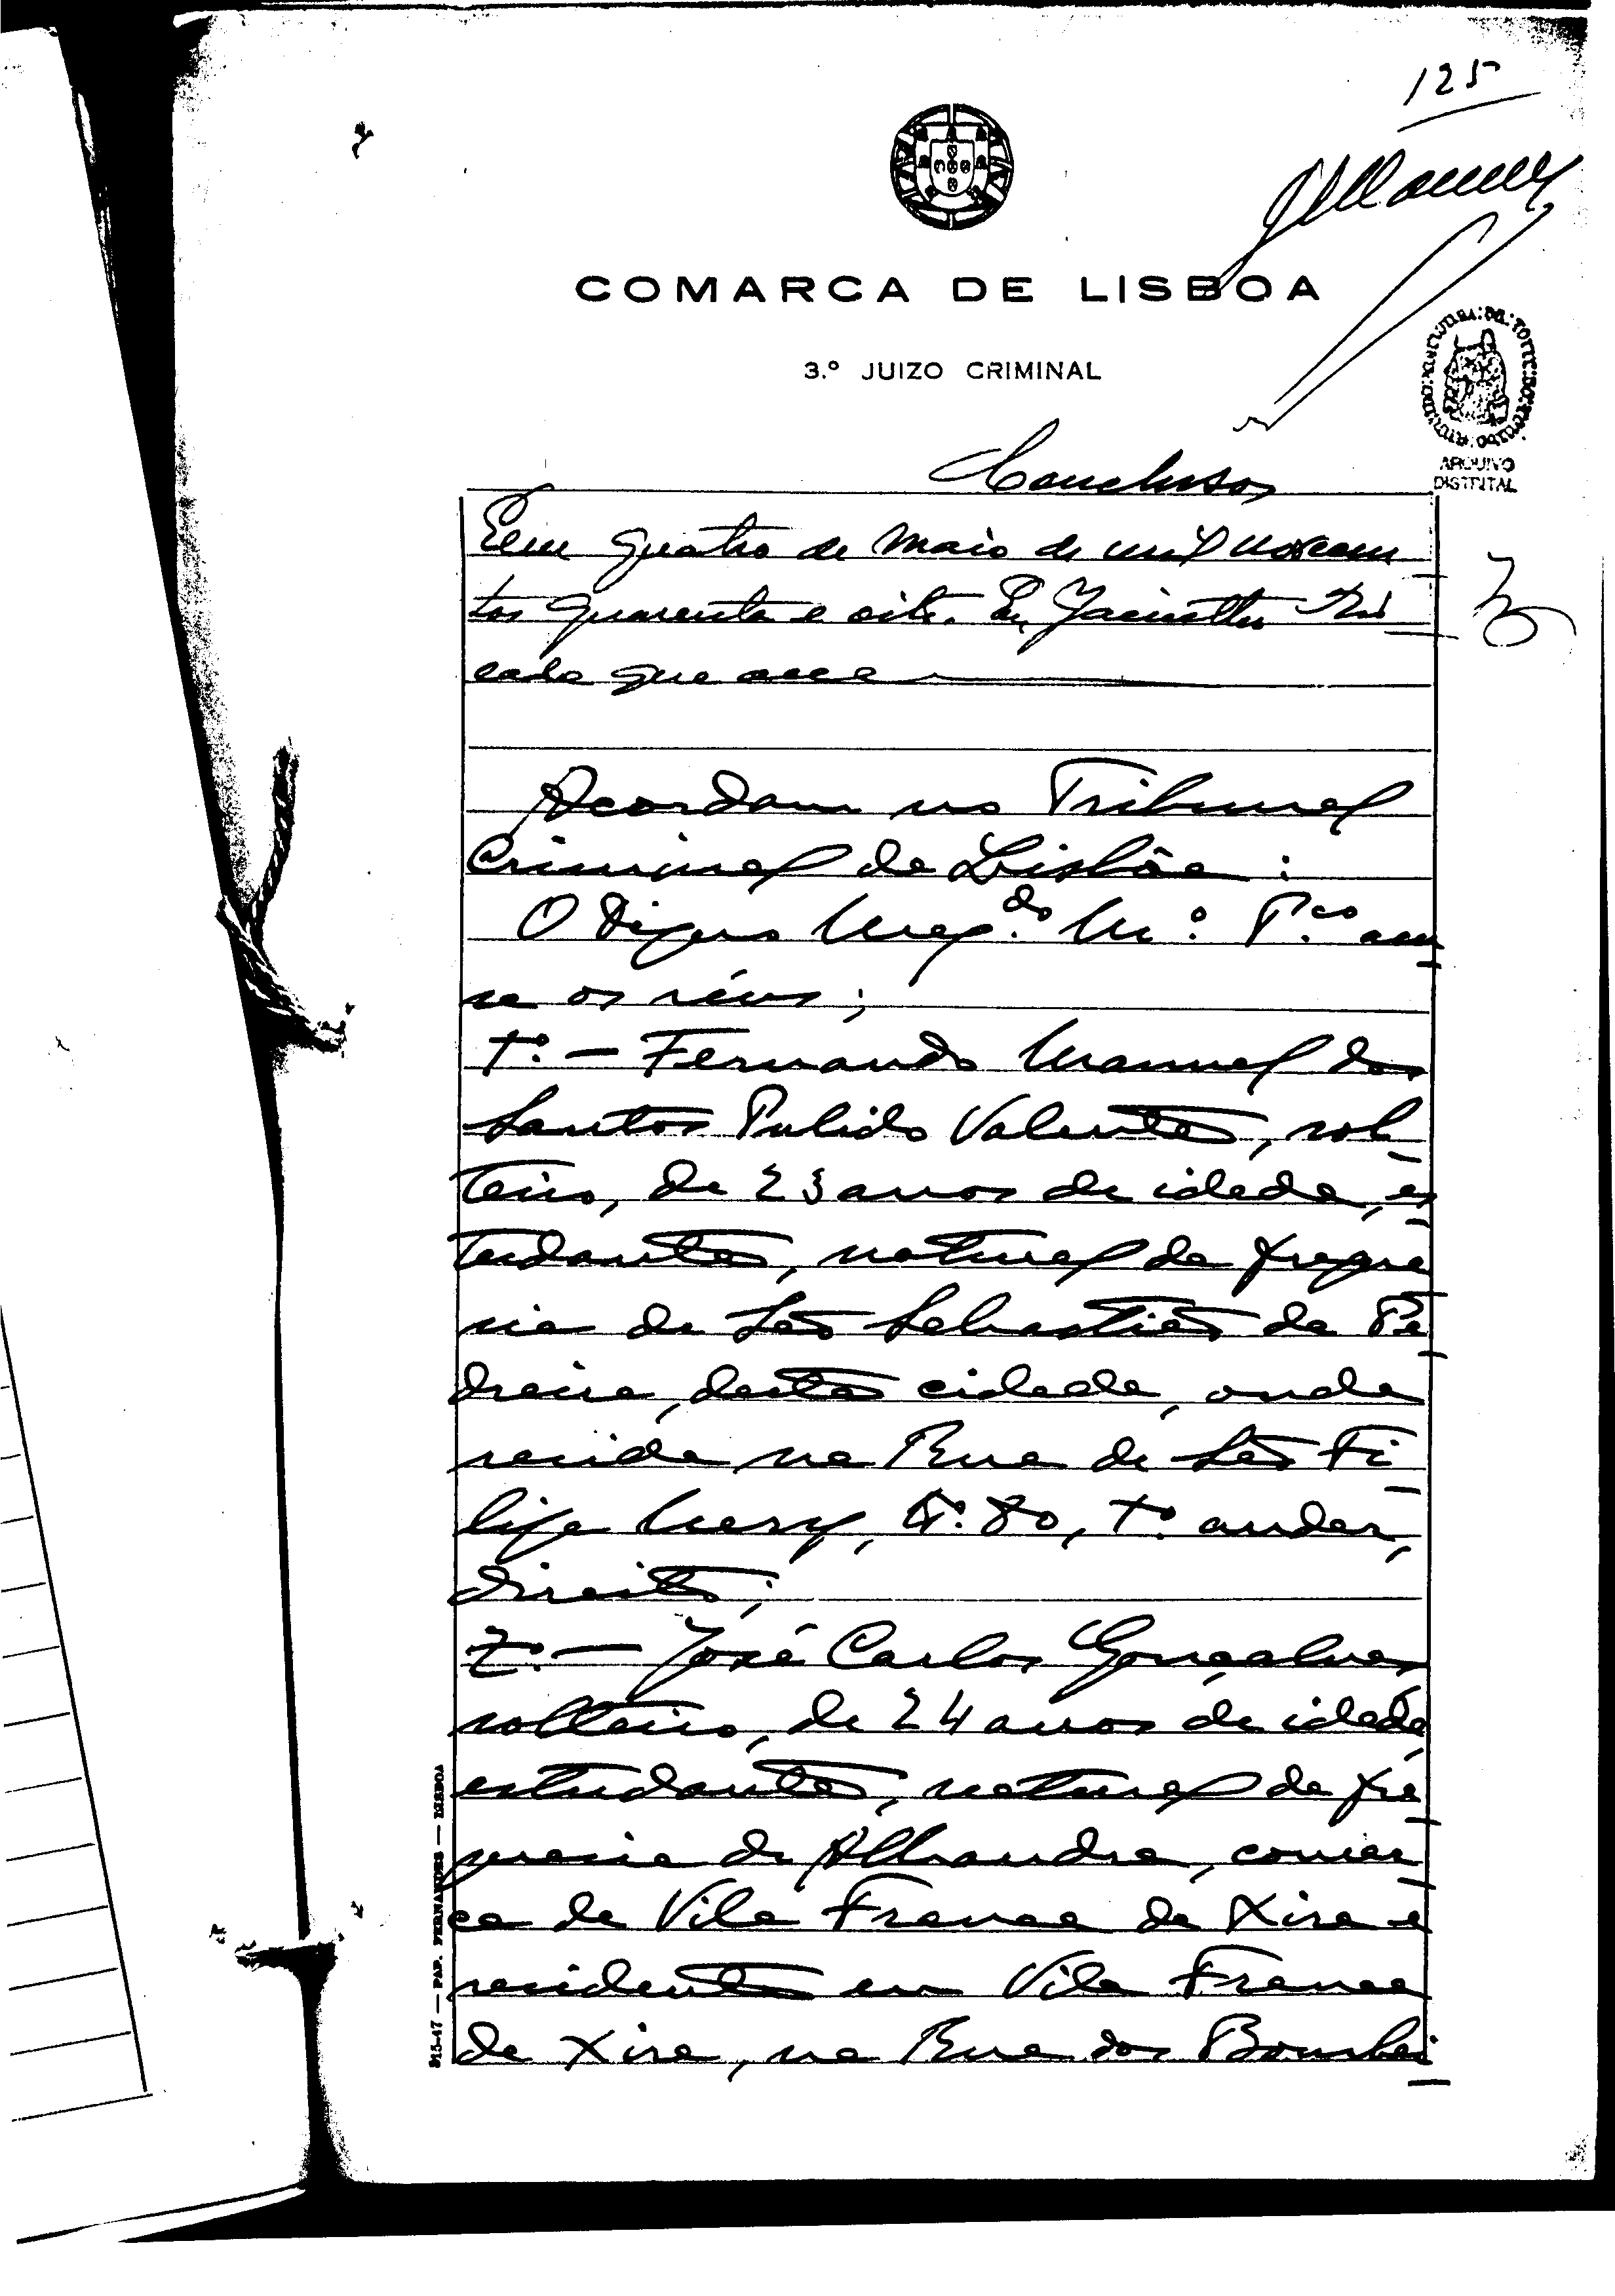 125
COMARCA DE LISBOA
3.º JUIZO CRIMINAL
ARQUIVO
DISTRITAL
Conclusos
Em quatro de Maio de mil novecen
tos quarenta e oito. Eu, Jacintho
que
Acordam no Tribunal
Criminal de Lisbôa:
O Digno Mag.do M.º P.co acu
sa os réus;
1.º — Fernando Manuel dos
Santos Pulido Valente, sol
teiro, de 23 anos de idade, es
tudante, natural da fregue
sia de São Sebastião da Pe
dreira, desta cidade, onde
reside na Rua de São Fi
lipe Nery, N.º 80, 1.º andar,
direito;
2.º — José Carlos Gonçalves
solteiro, de 24 anos de idade,
estudante, natural da fre
guesia de Alhandra, comar
ca de Vila Franca de Xira e
residente em Vila Franca
de Xira, na Rua dos Bombei
915-47 — PAP. FERNANDES — LISBOA